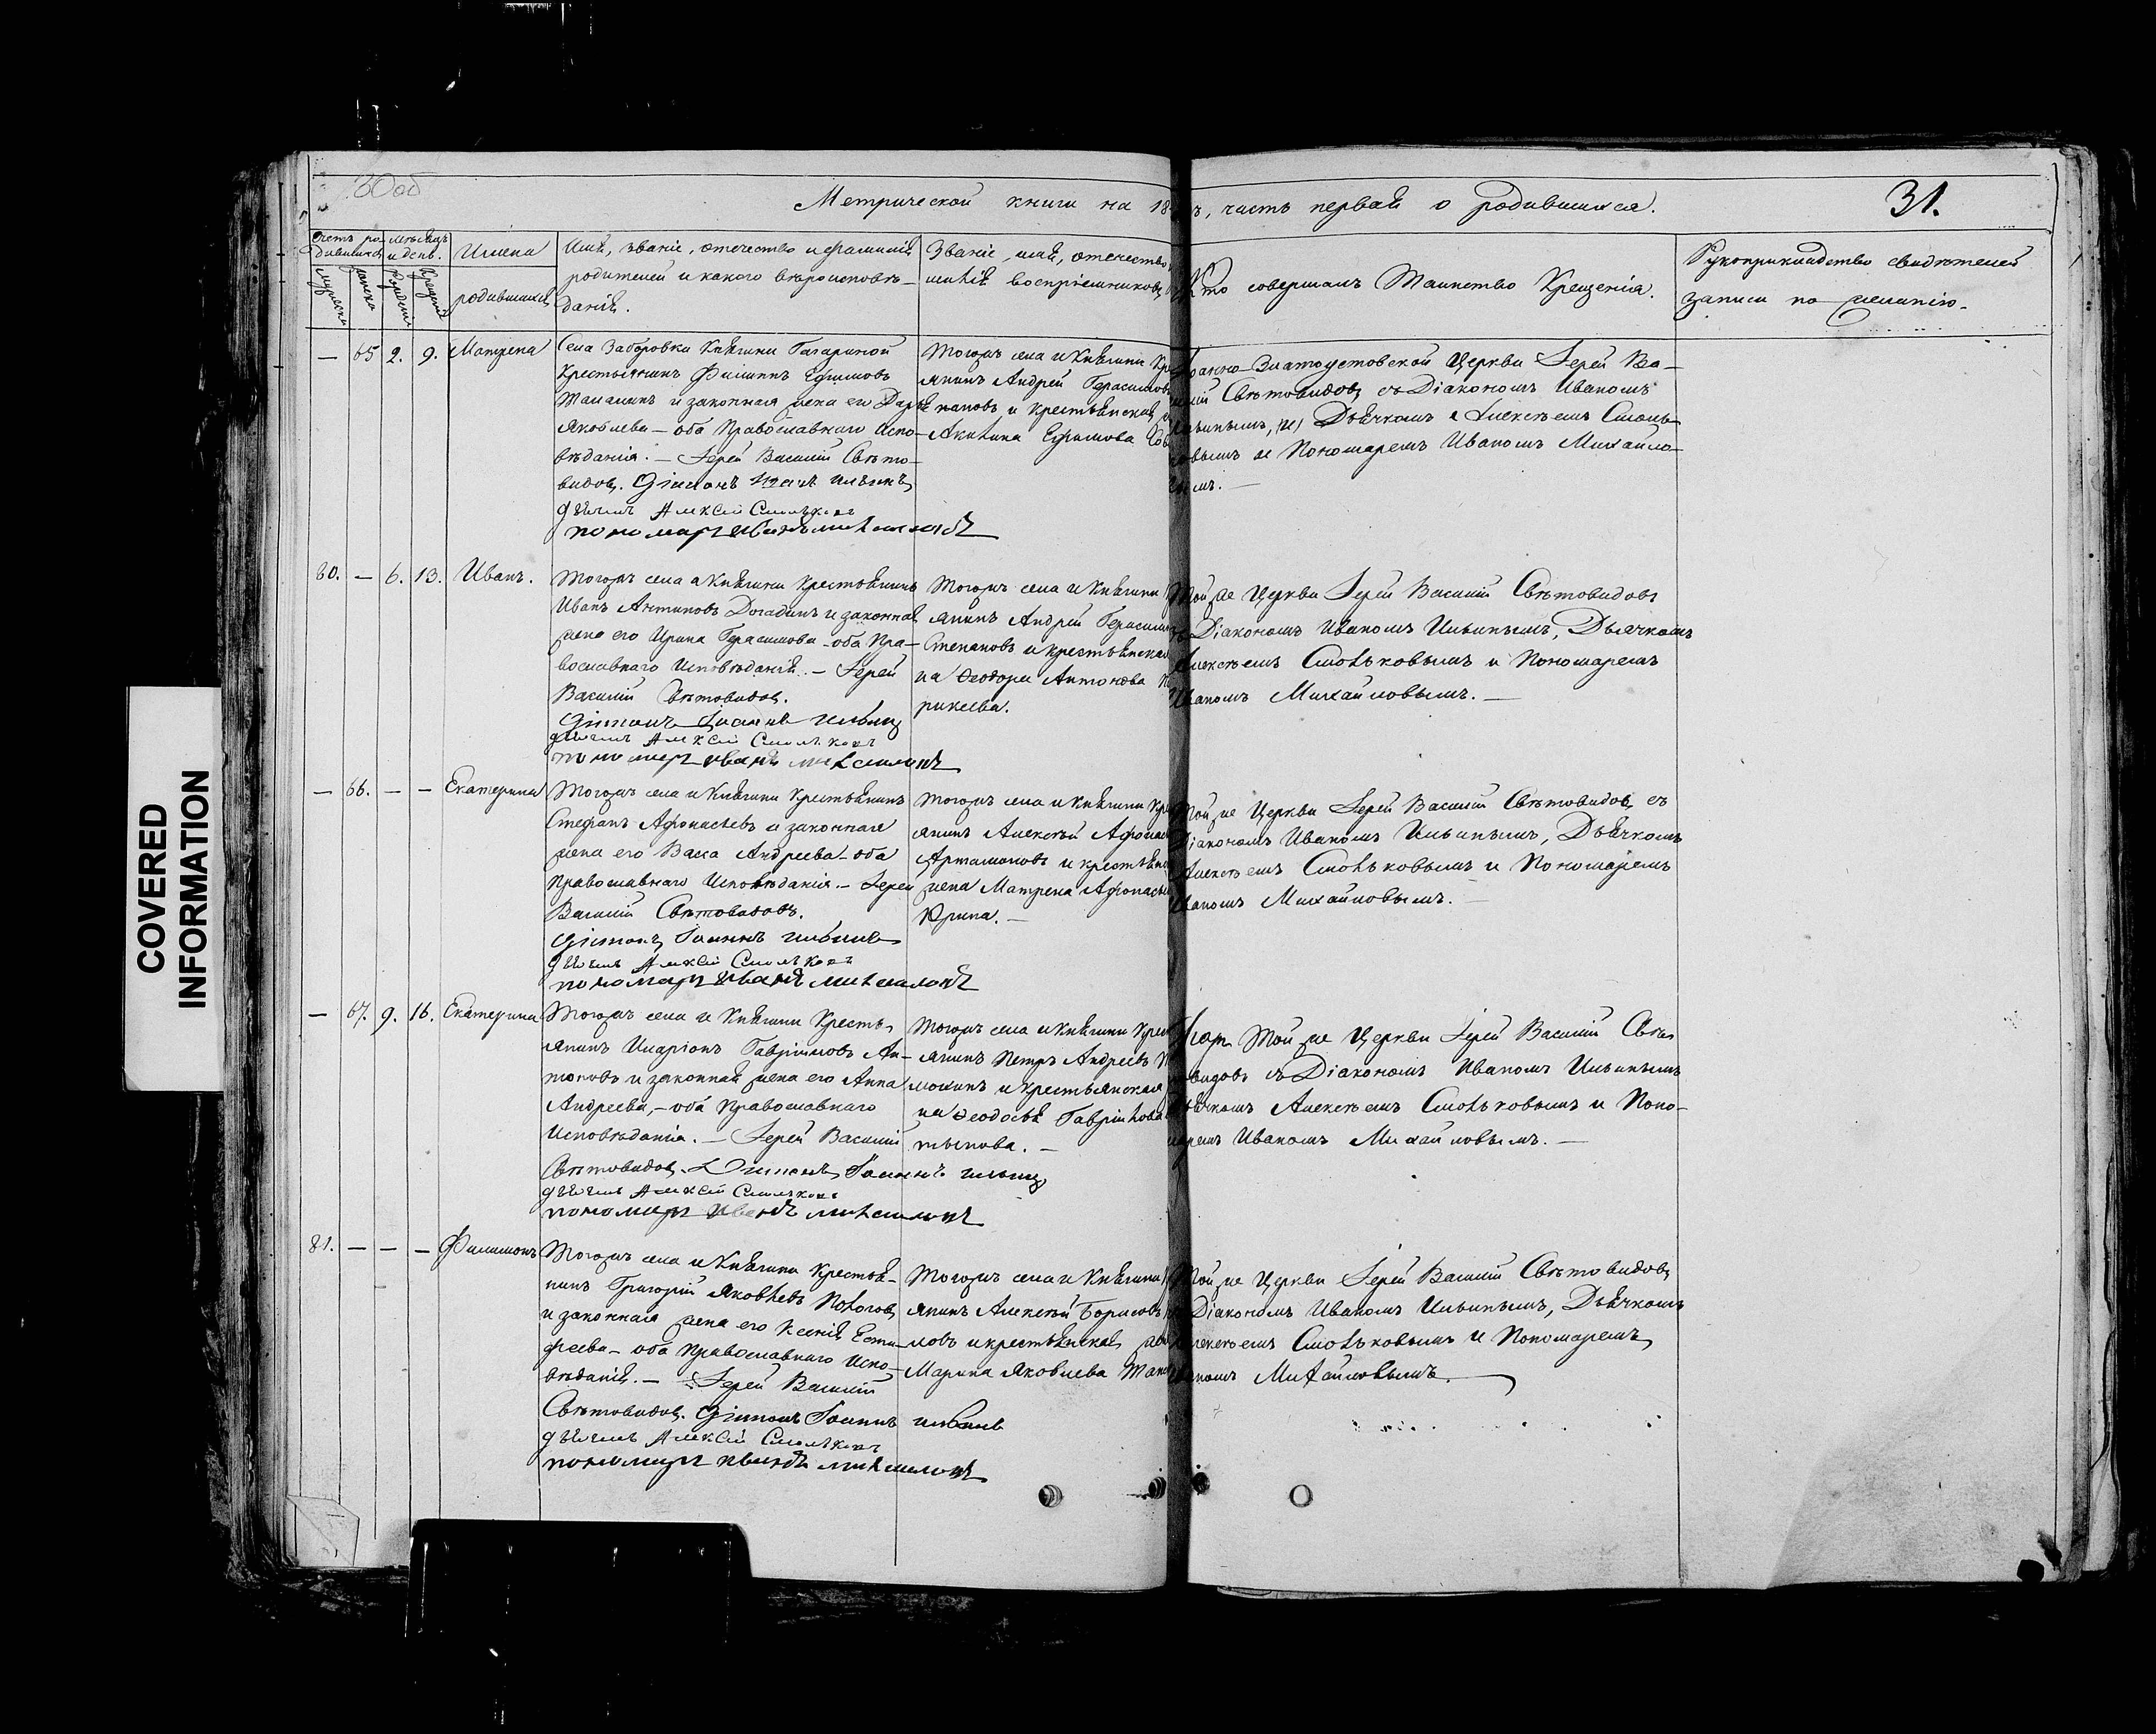 30об
Метрической книги на 18 ъ, часть первая о родившихся.
31.
Счетъ ро-
дившихся
мѣсяцъ
и день.
Имена
родившихся
Имя, званіе, отечество и фамилія
родителей и какого вѣроисповѣ-
данія.
Званіе, имя, отечество
милія воспріемниковъ
Кто совершалъ Таинство Крещенія.
Рукоприкладство свидѣтелей
записи по желанію.
— 65 2. 9. Матрена
Села Заборовки Княгини Гагариной
Крестьянинъ Филиппъ Ефимовъ
и законная жена его Дарья
Яковлева — оба Православнаго Испо-
вѣданія. — Іерей Василій Свѣто-
видовъ. Діаконъ Иванъ Ильинъ
дьячекъ Алексѣй Смольковъ
пономарь Иванъ Михайловъ
Тогожъ села и Княгини Кре
янинъ Андрей Герасимовъ
и крестьянская
Акилина Ефимова
Іоанно-Златоустовской Церкви Іерей Ва-
силій Свѣтовидовъ съ Діакономъ Иваномъ
Ильинымъ, Дьячкомъ Алексѣемъ Смоль-
ковымъ и Пономаремъ Иваномъ Михайло-
вымъ. —
80. — 6. 13. Иванъ.
Тогожъ села и Княгини Крестьянинъ
Иванъ Антиповъ Догадинъ и законная
жена его Ирина Герасимова — оба Пра-
вославнаго Исповѣданія. — Іерей
Василій Свѣтовидовъ.
Діаконъ Іоаннъ Ильинъ
дьячекъ Алексѣй Смольковъ
пономарь Иванъ Михайловъ
Тогожъ села и Княгини
янинъ Андрей Герасимовъ
Степановъ и крестьянская
на Феодора Антонова
рикеева.
Той же Церкви Іерей Василій Свѣтовидовъ
съ Діакономъ Иваномъ Ильинымъ, Дьячкомъ
Алексѣемъ Смольковымъ и Пономаремъ
Иваномъ Михайловымъ. —
— 66. — — Екатерина
Тогожъ села и Княгини Крестьянинъ
Стефанъ Афонасьевъ и законная
жена его Васса Андреева — оба
Православнаго Исповѣданія. — Іерей
Василій Свѣтовидовъ.
Діаконъ Іоаннъ Ильинъ
дьячекъ Алексѣй Смольковъ
пономарь Иванъ Михайловъ
Тогожъ села и Княгини Кре
янинъ Алексѣй Афонась
Артамоновъ и крестьянс
жена Матрена Афонась
Юрина. —
Той же Церкви Іерей Василій Свѣтовидовъ съ
Діакономъ Иваномъ Ильинымъ, Дьячкомъ
Алексѣемъ Смольковымъ и Пономаремъ
Иваномъ Михайловымъ. —
— 67. 9. 16. Екатерина
Тогожъ села и Княгини Кресть-
янинъ Иларіонъ Гавріиловъ Ан-
тоновъ и законная жена его Анна
Андреева, — оба Православнаго
Исповѣданія. — Іерей Василій
Свѣтовидовъ. Діаконъ Іоаннъ Ильинъ
дьячекъ Алексѣй Смольковъ
пономарь Иванъ Михайловъ
Тогожъ села и Княгини Крес
янинъ Петръ Андреевъ
мохинъ и крестьянская
на Феодосья Гаврилова
тынова. —
Той же Церкви Іерей Василій Свѣто-
видовъ съ Діакономъ Иваномъ Ильинымъ
Дьячкомъ Алексѣемъ Смольковымъ и Поно-
маремъ Иваномъ Михайловымъ. —
81. — — — Филимонъ
Тогожъ села и Княгини Крестья-
нинъ Григорій Яковлевъ
и законная жена его Ксенія Еста-
феева — оба Православнаго Испо-
вѣданія. — Іерей Василій
Свѣтовидовъ. Діаконъ Іоаннъ Ильинъ
дьячекъ Алексѣй Смольковъ
пономарь Иванъ Михайловъ
Тогожъ села и Княгини
янинъ Алексѣй Борисовъ
ловъ и крестьянская жен
Марина Яковлева
Той же Церкви Іерей Василій Свѣтовидовъ
Діакономъ Иваномъ Ильинымъ, Дьячкомъ
Алексѣемъ Смольковымъ и Пономаремъ
Иваномъ Михайловымъ.
COVERED
INFORMATION